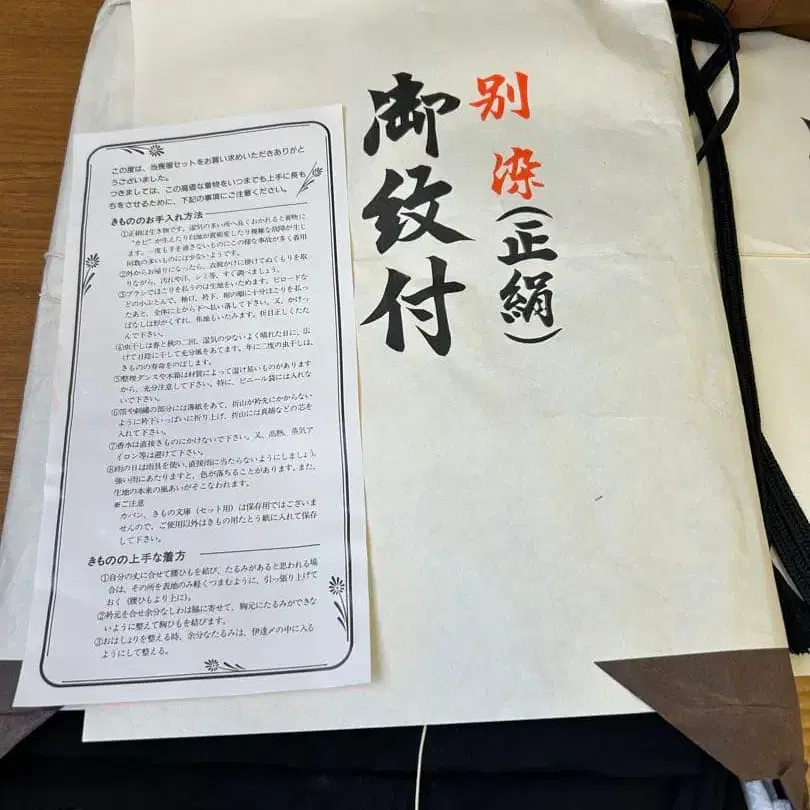 この度は、当喪服セットをお買い求めいただきありがと
うございました。
つきましては、この高価な着物をいつまでも上手に長も
ちをさせるために、下記の事項にご注意ください。
きもののお手入れ方法
①正絹は生き物です。湿気の多い所へ長くおかれると着物に
"カビ"が生えたり白地が黄褐変したり種々な故障が生じ
ます。一度も手を通さないものにこの様な事故が多く着用
回数の多いものには少ないようです。
②外からお帰りになったら、衣紋かけに掛けてぬくもりを取
りながら、汚れや汗、シミ等、すぐ調べましょう。
③ブラシでほこりを払うのは生地をいためます。ビロードな
どの小ぶとんで、袖口、衿下、裾の順に十分ほこりを払っ
たあと、全体に上から下へ払い落して下さい。又、かけっ
ぱなしは形がくずれ、布地もいたみます。折目正しくたた
んで下さい。
④虫干しは春と秋の二回、湿気の少ないよく晴れた日に、広
げて日陰に干して充分風をあてます。年に二度の虫干しは、
きものの寿命をのばします。
⑤整理ダンスや木箱は材質によって湿け易いものがあります
から、充分注意して下さい。特に、ビニール袋には入れな
いで下さい。
⑥箔や刺繍の部分には薄紙をあて、折山が衿先にかからない
ように衿下いっぱいに折り上げ、折山には真綿などの芯を
入れて下さい。
⑦香水は直接きものにかけないで下さい。又、高熱、蒸気ア
イロン等は避けて下さい。
⑧雨の日は雨具を使い、直接雨に当たらないようにしましょう。
強い雨にあたりますと、色が落ちることがあります。また、
生地の本来の風あいがそこなわれます。
※ご注意
カバン、きもの文庫(セット用)は保存用ではございま
せんので、ご使用以外はきもの用たとう紙に入れて保存
して下さい。
きものの上手な着方
①自分の丈に合せて腰ひもを結び、たるみがあると思われる場
合は、その所を表地のみ軽くつまむように、引っ張り上げて
おく(腰ひもより上に)。
②衿元を合せ余分なしわは脇に寄せて、胸元にたるみができな
いように整えて胸ひもを結びます。
③おはしょりを整える時、余分なたるみは、伊達〆の中に入る
ようにして整える。
別染(正絹)
御紋付